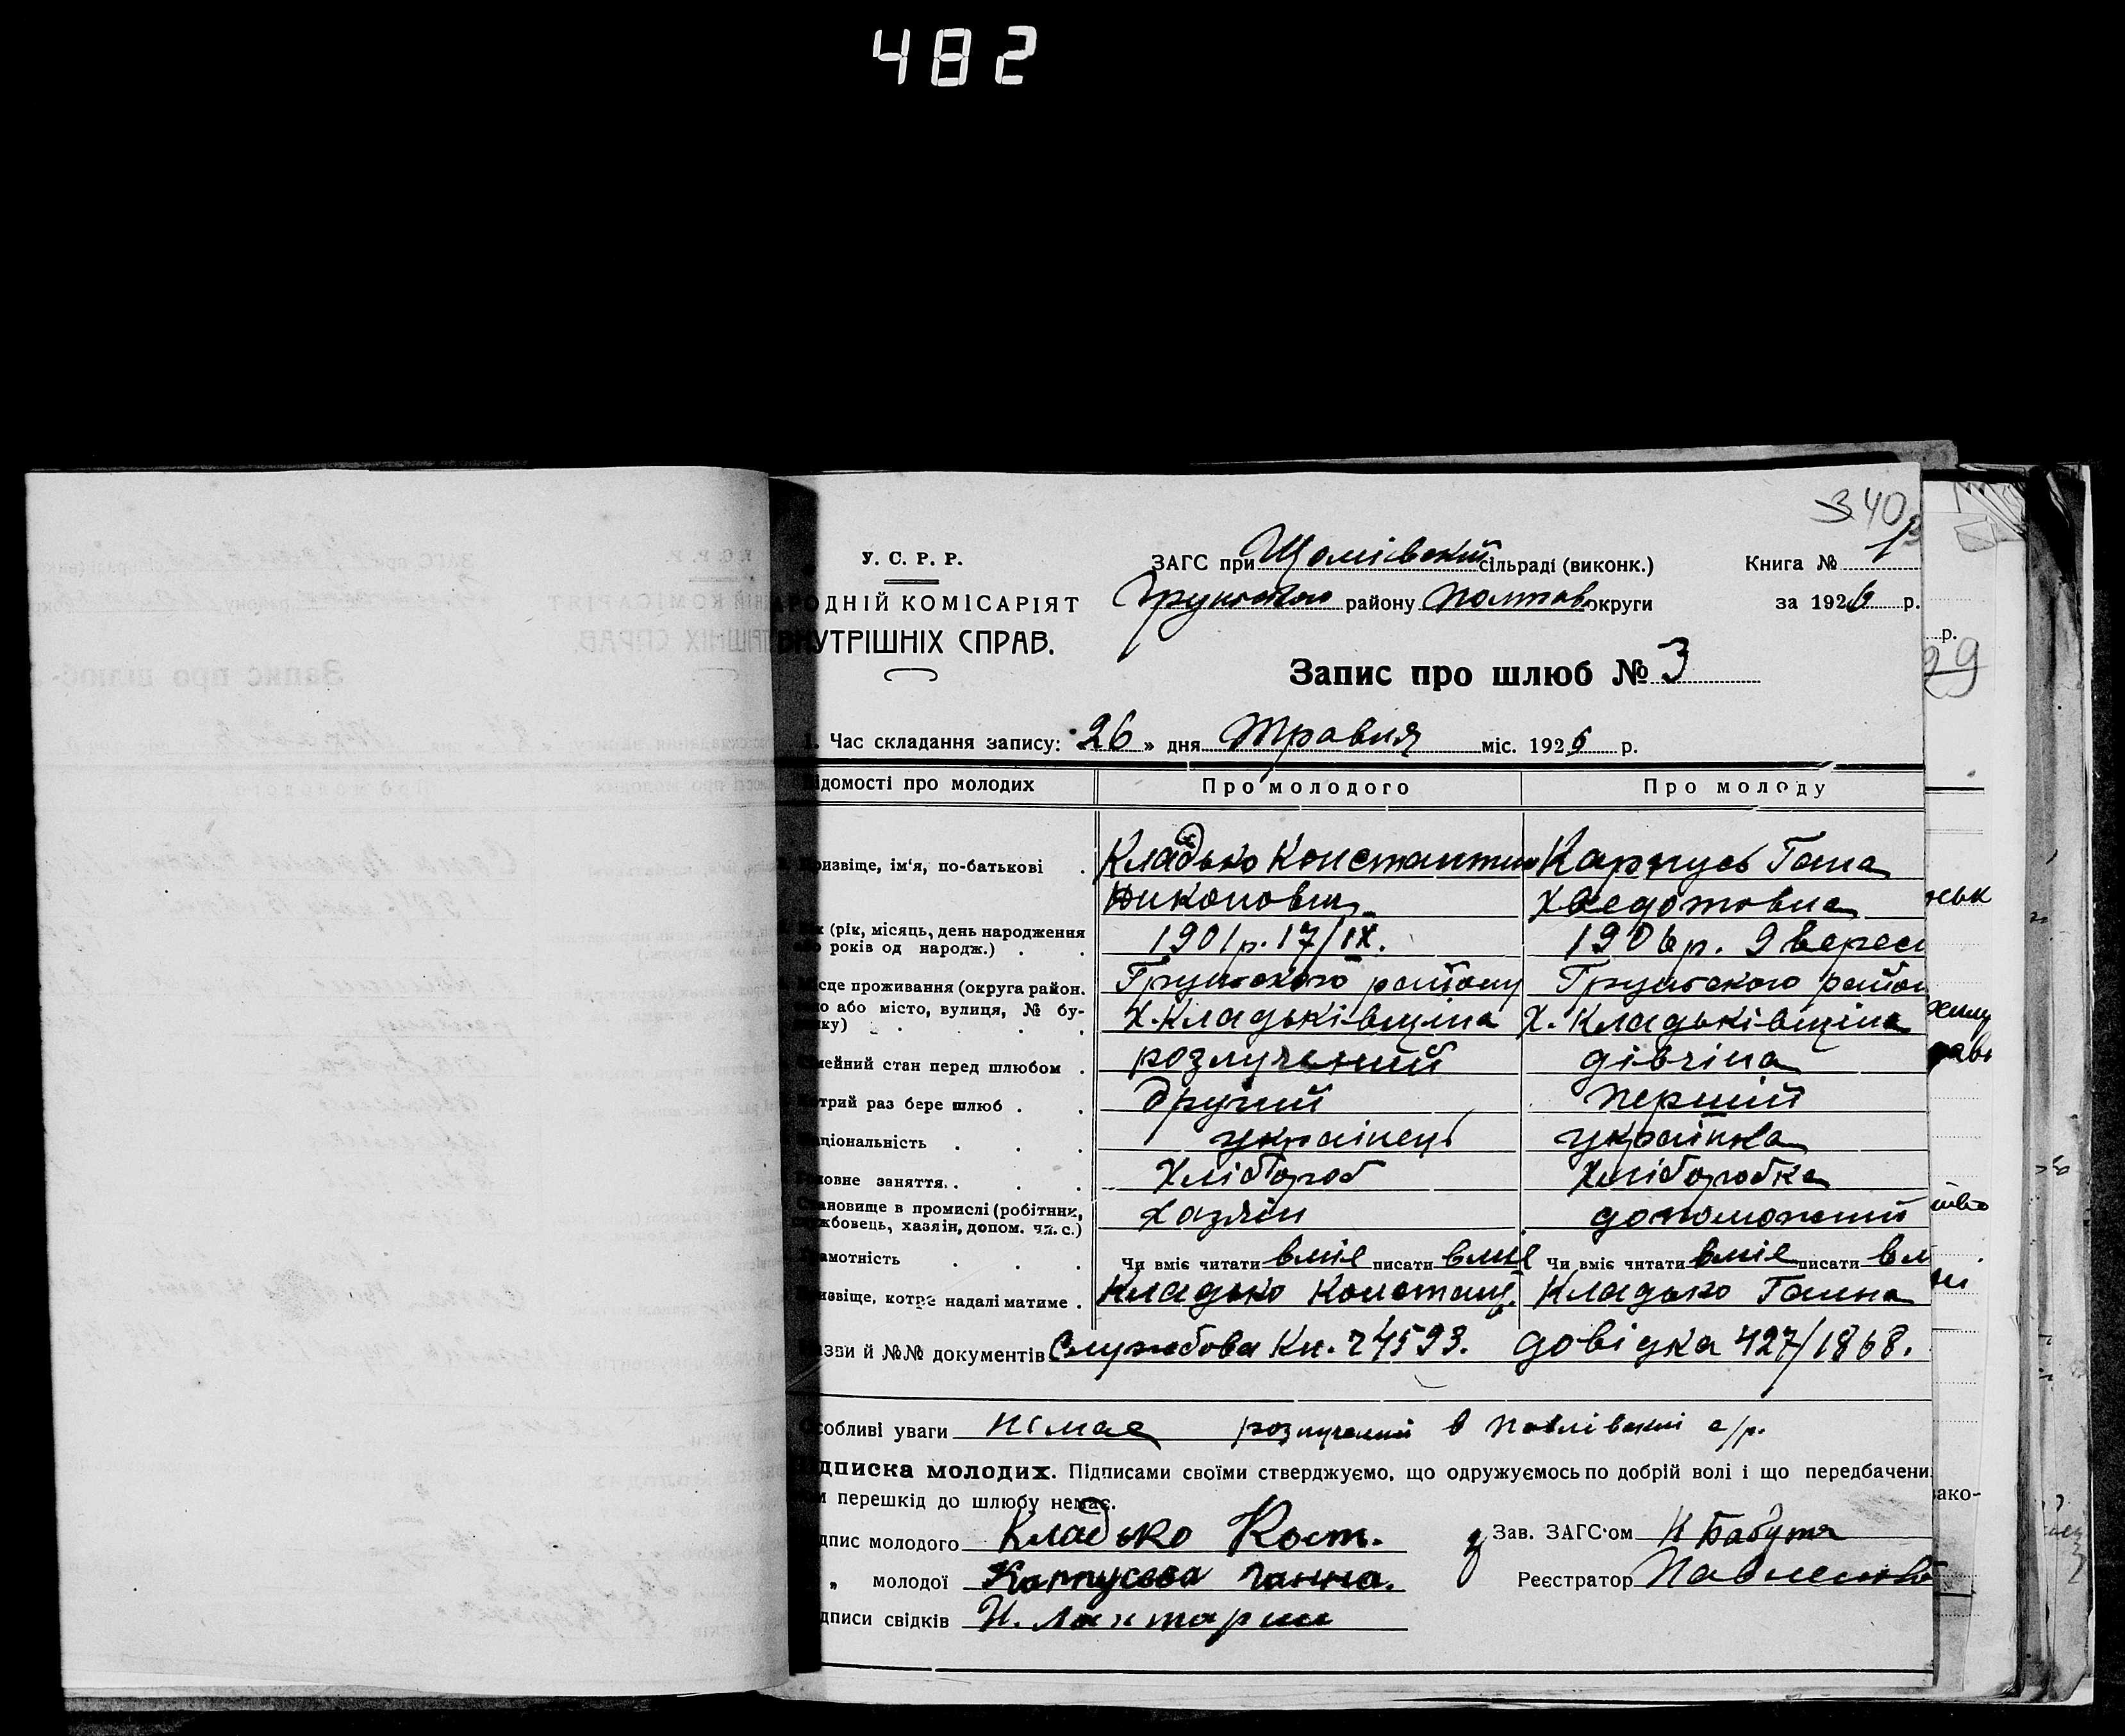 482
340
У. С. Р. Р.
РОДНІЙ КОМІСАРІЯТ
ВНУТРІШНІХ СПРАВ.
ЗАГС при сільраді (виконк.)
району Полтав. округи
Книга № 1
за 1926 р.
Запис про шлюб № 3
1. Час складання запису: „26 » дня Травня міс. 1926 р.
ідомості про молодих Про молодого Про молоду
ризвіще, ім'я, по-батькові . Кладько Константин Карпусь Гана
Никонович Хведотовна
(рік, місяць, день народження
або років од народж.) . . 1901 р. 17/IX. 1906 р. 9 верес
Місце проживання (округа район. Грунського району Грунського район
або місто, вулиця, № бу-
нку) . . . Х. Кладьківщина Х. Кладьківщина
мейний стан перед шлюбом . розлучений дівчіна
отрий раз бере шлюб . . другий перший
аціональність . . . українець українка
овне заняття. . . . Хлібороб Хліборобка
тановище в промислі (робітник,
ужбовець, хазяїн, допом. чл. с.) хазяїн
амотність . . . Чи вміє читати вміє писати вміє Чи вміє читати вміє писати вм
ізвіще, котре надалі матиме . Кладько Констант. Кладько Ганна
зви й №№ документів Службова Кн. 24593. довідка 427/1868.
собливі уваги німає розлучений в Павлівські с/р.
ідписка молодих. Підписами своїми стверджуємо, що одружуємось по добрій волі і що передбачени
м перешкід до шлюбу немає.
дпис молодого Кладько Кост.
Зав. ЗАГС'ом Н Бабутя
„ молодої Карпусева Ганна.
Реєстратор Павленко
дписи свідків Н. Лихтарин
р.
99
ськ
ако-